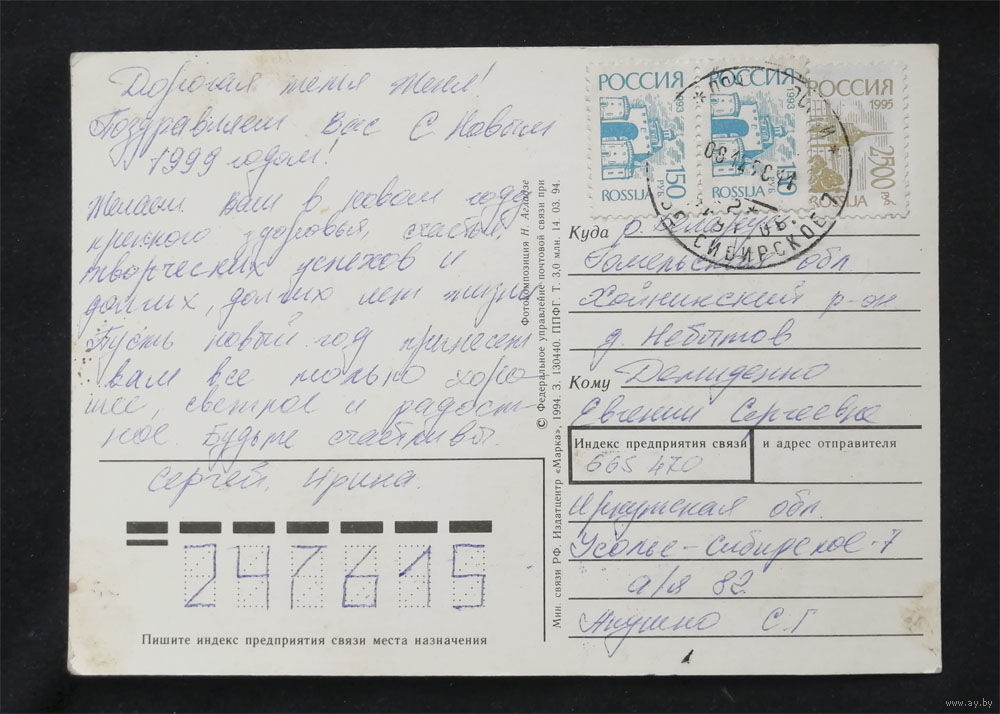 Дорогая тетя Женя!
Поздравляем Вас С Новым
1999 годом!
Желаем вам в новом году
крепкого здоровья, счастья,
творческих успехов и
долгих, долгих лет жизни
Пусть новый год принесет
вам все только хоро-
шее, светлое и радост-
ное. Будьте счастливы.
Сергей, Ирина.
247615
Пишите индекс предприятия связи места назначения
Фотокомпозиция Н. Агладзе
© Федеральное управление почтовой связи при
Мин. связи РФ. Издатцентр «Марка», 1994. З. 130440. ППФГ. Т. 3,0 млн. 14. 03. 94.
РОССИЯ
1993
150 РУБ
ROSSIJA
РОССИЯ
1993
150 РУБ
ROSSIJA
РОССИЯ
1995
2500
ROSSIJA
СИБИРСКОЕ
Куда р. Беларусь
Гомельская обл
Хойникский р-он
д. Небытов
Кому Демиденко
Евгении Сергеевне
Индекс предприятия связи
и адрес отправителя
665 470
Иркутская обл.
Усолье-Сибирское-7
а/я 82
Якушко С.Г
www.ay.by